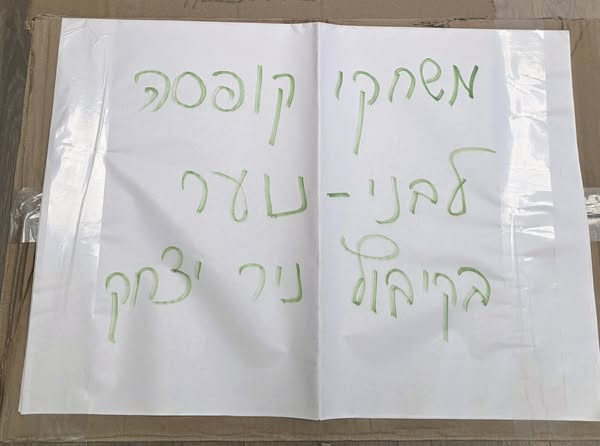 משחקי קופסה
לבני-נוער
בקיבוץ ניר יצחק